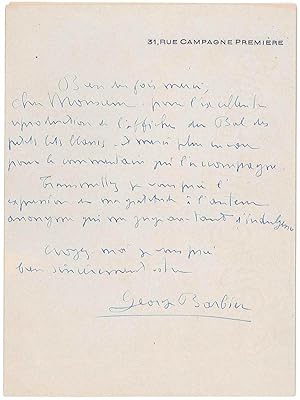 31, RUE CAMPAGNE PREMIÈRE
Bien des fois merci,
cher Monsieur, pour l'excellente
reproduction de l'affiche du Bal des
petits lits blancs. merci plus encore
pour le commentaire qui l'accompagne.
Transmettez je vous prie l'
expression de ma gratitude à l'auteur
anonyme qui me juge avec tant d'indulgence
Croyez moi je vous prie
bien sincèrement votre
George Barbier